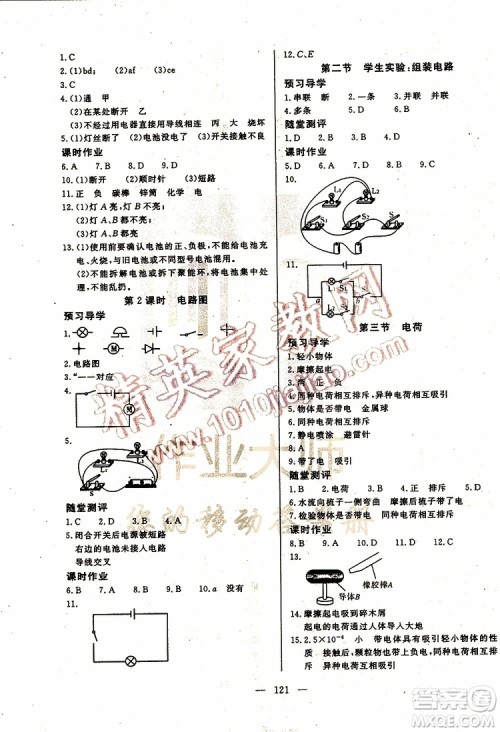 1. C
2. (1)bd; (2)af (3)ce
4. (1)通 甲
(2)在某处断开 乙
(3)不经过用电器直接用导线相连 丙 大 烧坏
5. (1)灯丝断了 (2)电池没电了 (3)开关接触不良
课时作业
6. A 7. B 8. D 9. A
10. (1)断开 (2)顺时针 (3)短路
11. 正 负 碳棒 锌筒 化学 电
12. (1)灯A亮,灯B不亮;
(2)灯A、B都不亮;
(3)灯A、B都亮。
13. (1)使用前要确认电池的正、负极,不能给电池充
电、火烧,与旧电池或不同型号电池混用。
(2)不能拆解电池或将电池短路,电池不能加
热,不能乱扔。
第2课时 电路图
预习导学
1.
2. 电路图
3. 一一对应
4.
5.
随堂测评
1. C 2. D 3. C 4. A
5. 闭合开关后电源被短路
右边的电池未接入电路
导线交叉
课时作业
6. B 7. A 8. A 9. C 10. a 没有
11.
12. C、E
第二节 学生实验:组装电路
预习导学
1. 串联 断 2. 一条 3. 并联 并联
4. 多条
随堂测评
1. D 2. B 3. C 4. D
课时作业
5. D 6. B 7. C 8. D 9. A
10.
11.
第三节 电荷
预习导学
1. 轻小物体
2. 摩擦起电
3. 两 正 负
4. 同种电荷相互排斥,异种电荷相互吸引
5. 物体是否带电 金属球
6. 同种电荷相互排斥
7. 静电喷涂 避雷针
8. B 9. 带了电 吸引
随堂测评
1. D 2. 电荷 3. C 4. D 5. A
6. 水流向梳子一侧弯曲 摩擦后梳子带了电
7. 检验物体是否带电 同种电荷相互排斥
课时作业
8. B 9. D 10. C 11. D 12. A
13.
橡胶棒A
导体B
14. 摩擦起电吸引碎木屑
起电的电荷通过人体导入大地
15. 2.5×10⁻⁴ 小 带电体有吸引轻小物体的性
质 接触后,颗粒物也带负电荷,异种电荷相
互吸引
— 121 —
精英家教网
www.1010jiajiao.com
作业大师
您的移动答案册
答案圈